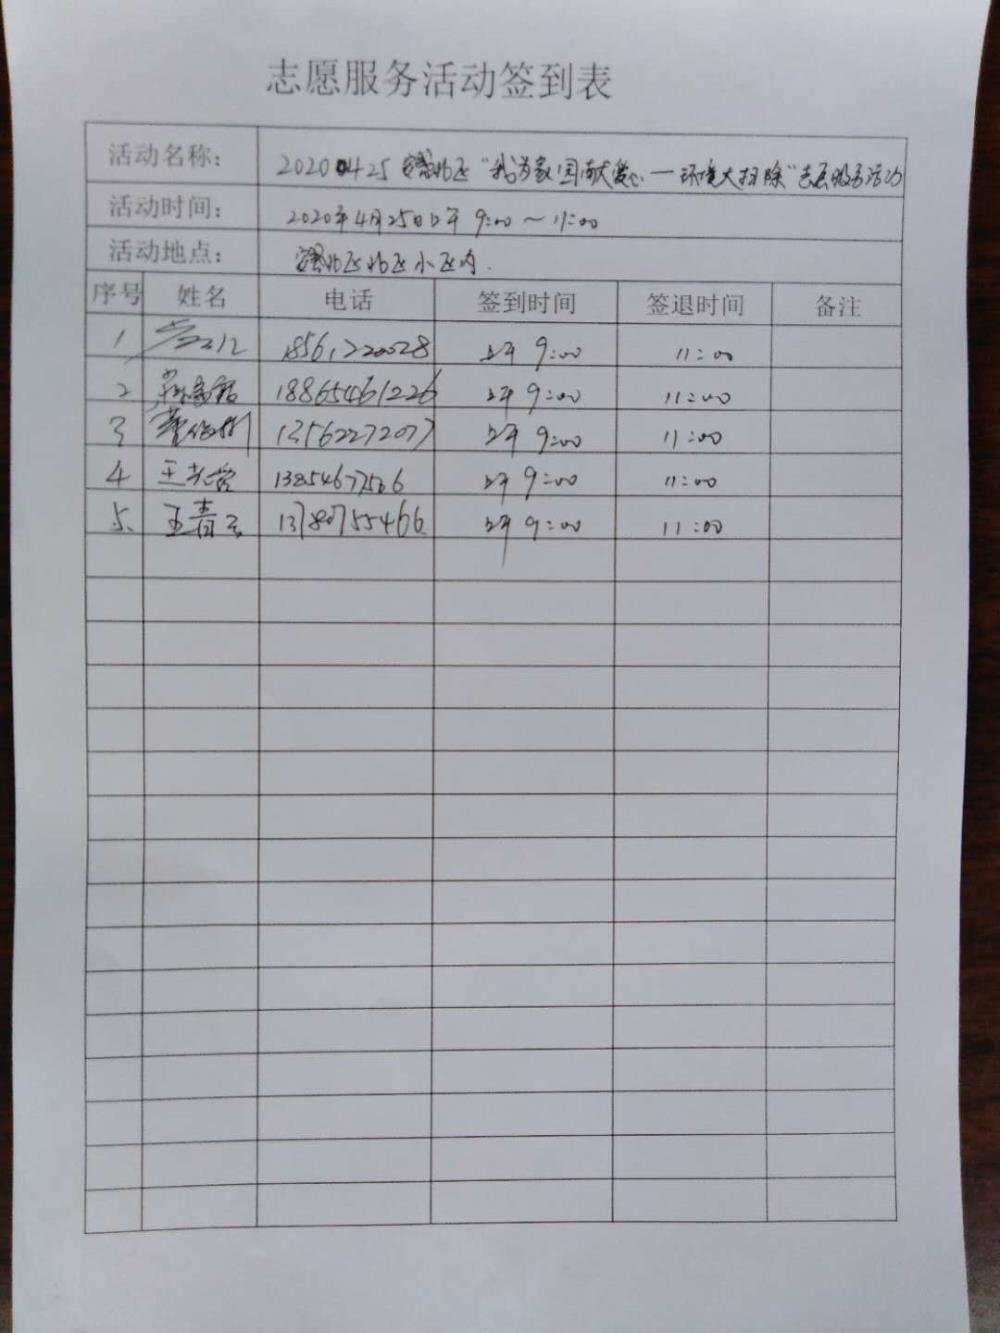 志愿服务活动签到表
活动名称： 20200425 北区"我为家国献爱心—环境大扫除"志愿服务活动
活动时间： 2020年4月25日上午 9:00～11:00
活动地点： 北区北区小区内.
序号 姓名 电话 签到时间 签退时间 备注
1 18561220028 上午 9:00 11:00
2 18865461226 上午 9:00 11:00
3 13562272077 上午 9:00 11:00
4 王 13854677566 上午 9:00 11:00
5. 王青云 13780755466 上午 9:00 11:00